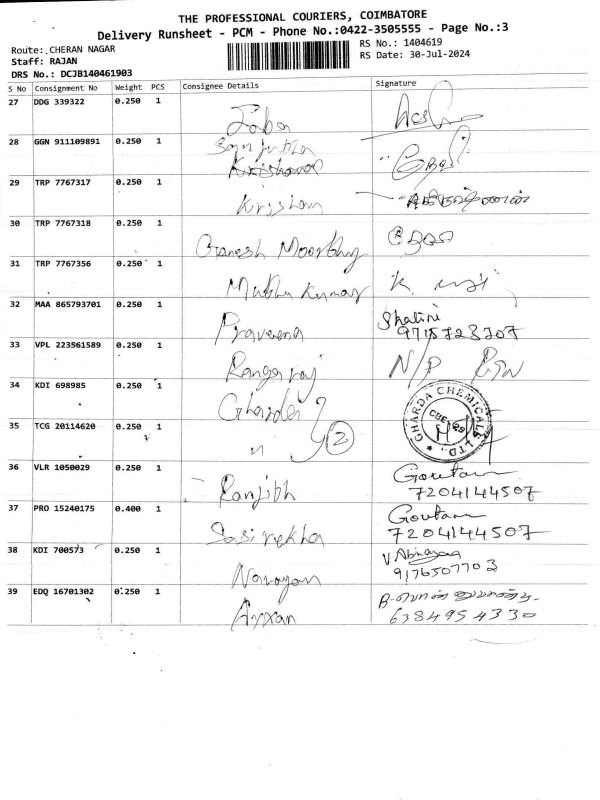 THE PROFESSIONAL COURIERS, COIMBATORE
Delivery Runsheet - PCM - Phone No.:0422-3505555 - Page No.:3
Route: CHERAN NAGAR
RS No.: 1404619
Staff: RAJAN
RS Date: 30-Jul-2024
DRS No.: DCJB140461903
S No Consignment No Weight PCS Consignee Details Signature
27 DDG 339322 0.250 1
28 GGN 911109891 0.250 1
Krishnan
29 TRP 7767317 0.250 1
30 TRP 7767318 0.250 1
Ganesh Moorthy
31 TRP 7767356 0.250 1
Muthu Kumar
32 MAA 865793701 0.250 1 Shalini
Praveena 9715723707
33 VPL 223561589 0.250 1
Rangaraj N/P
34 KDI 698985 0.250 1
Gharda
GHARDA CHEMICALS LTD
35 TCG 20114620 0.250 1
" 2
36 VLR 1050029 0.250 1 Goutam
Ranjith 7204144507
37 PRO 15240175 0.400 1 Goutam
Sasirekha 7204144507
38 KDI 700573 0.250 1 V. Abinayaa
Narayan 9176507703
39 EDQ 16701302 0.250 1
Ayyan 6384954330